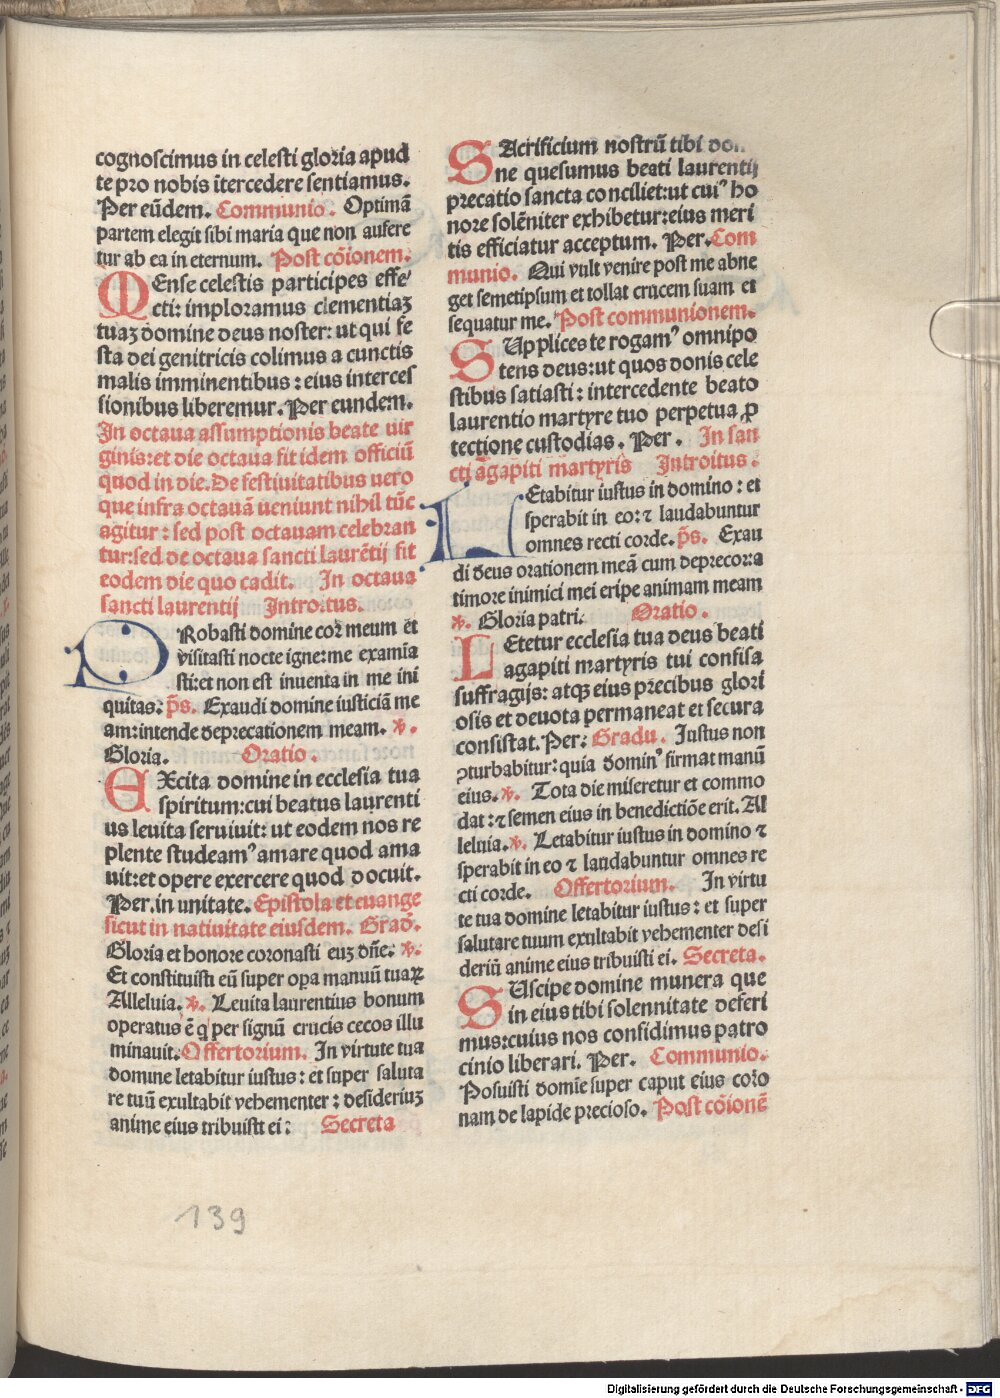 cognoscimus in celesti gloria apud
te pro nobis ĩtercedere sentiamus.
Per eũdem. Communio. Optimã
partem elegit sibi maria que non aufere
tur ab ea in eternum. Post cõionem.
MEnse celestis participes effe
cti: imploramus clementiaꝫ
tuaꝫ domine deus noster: ut qui fe
sta dei genitricis colimus a cunctis
malis imminentibus: eius interces
sionibus liberemur. Per eundem.
In octaua assumptionis beate uir
ginis: et die octaua fit idem officiũ
quod in die. De festiuitatibus uero
que infra octauã ueniunt nihil tũc
agitur: sed post octauam celebran
tur: sed de octaua sancti laurẽtij fit
eodem die quo cadit. In octaua
sancti laurentij Introitus.
PRobasti domine cor meum et
visitasti nocte igne: me examĩa
sti: et non est inuenta in me ini
quitas: p̃s. Exaudi domine iusticiã me
am: intende deprecationem meam. ℣.
Gloria. Oratio.
EXcita domine in ecclesia tua
spiritum: cui beatus laurenti
us leuita seruiuit: ut eodem nos re
plente studeamꝰ amare quod ama
uit: et opere exercere quod docuit.
Per. in unitate. Epistola et euange
sicut in natiuitate eiusdem. Grad̃.
Gloria et honore coronasti euꝫ dñe. ℣.
Et constituisti eũ super opa manuũ tuaꝝ
Alleluia. ℣. Leuita laurentius bonum
operatus ẽ q per signũ crucis cecos illu
minauit. Offertorium. In virtute tua
domine letabitur iustus: et super saluta
re tuũ exultabit vehementer: desideriuꝫ
anime eius tribuisti ei: Secreta
SAcrificium nostrũ tibi do
ne quesumus beati laurentij
precatio sancta conciliet: ut cuiꝰ ho
nore solẽniter exhibetur: eius meri
tis efficiatur acceptum. Per. Com
munio. Qui vult venire post me abne
get semetipsum et tollat crucem suam et
sequatur me. Post communionem.
SUpplices te rogamꝰ omnipo
tens deus: ut quos donis cele
stibus satiasti: intercedente beato
laurentio martyre tuo perpetua ꝓ
tectione custodias. Per. In san
cti agapiti martyris Introitus.
LEtabitur iustus in domino: et
sperabit in eo: ⁊ laudabuntur
omnes recti corde. p̃s. Exau
di deus orationem meã cum deprecor: a
timore inimici mei eripe animam meam
℣. Gloria patri: Oratio.
LEtetur ecclesia tua deus beati
agapiti martyris tui confisa
suffragijs: atqꝫ eius precibus glori
osis et deuota permaneat et secura
consistat. Per: Gradu. Iustus non
ꝯturbabitur: quia dominꝰ firmat manũ
eius. ℣. Tota die miseretur et commo
dat: ⁊ semen eius in benedictiõe erit. Al
leluia. ℣. Letabitur iustus in domino ⁊
sperabit in eo ⁊ laudabuntur omnes re
cti corde. Offertorium. In virtu
te tua domine letabitur iustus: et super
salutare tuum exultabit vehementer desi
deriũ anime eius tribuisti ei. Secreta.
SUscipe domine munera que
in eius tibi solennitate deferi
mus: cuius nos confidimus patro
cinio liberari. Per. Communio.
Posuisti domĩe super caput eius coro
nam de lapide precioso. Post cõionẽ
139
Digitalisierung gefördert durch die Deutsche Forschungsgemeinschaft - DFG